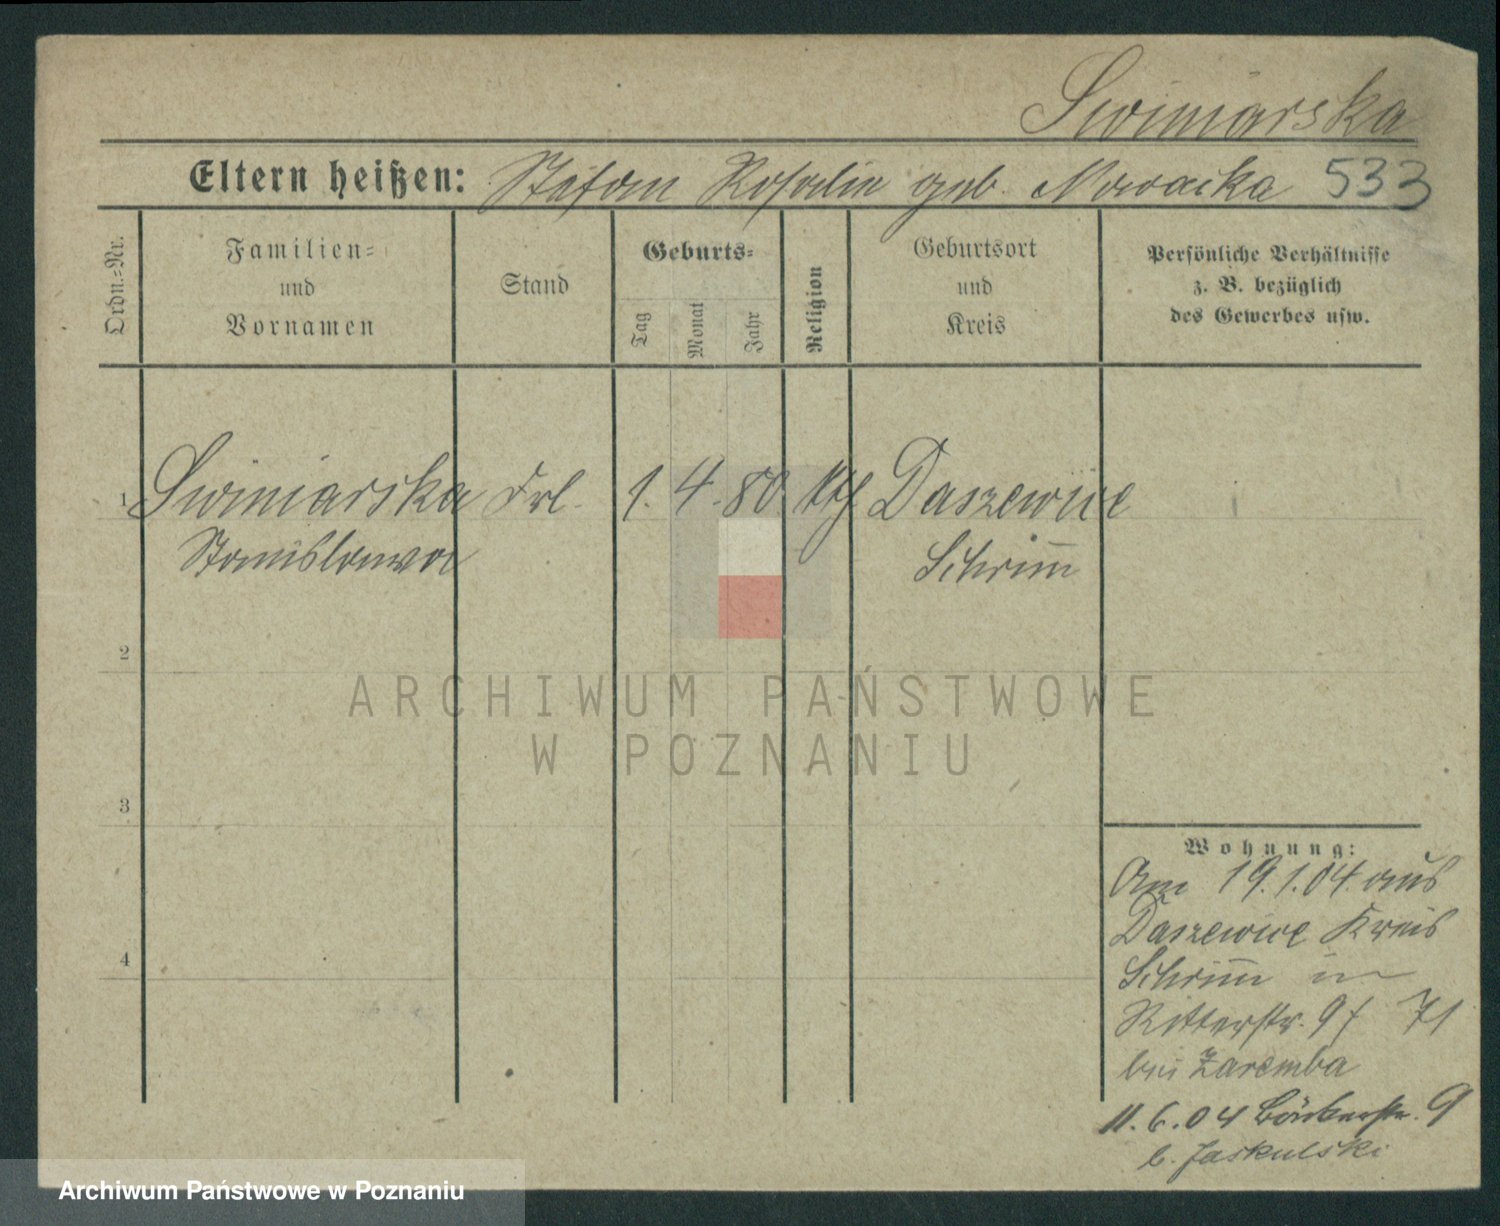 Swiniarska
Eltern heißen: Stefan Rosalie geb. Nowacka 533
Ordn.=Nr.
Familien=
und
Vornamen
Stand
Geburts=
Tag
Monat
Jahr
Religion
Geburtsort
und
Kreis
Persönliche Verhältnisse
z. B. bezüglich
des Gewerbes usw.
1 Swiniarska Frl. 1. 4. 80 kth Daszewice
Stanislawa Schrim̅
2
3
4
Wohnung:
Am 19.1.04 aus
Daszewice Kreis
Schrim̅ in
Ritterstr. 9
bei Zaremba
11.6.04 Bäckerstr. 9
b. Jaskulski
ARCHIWUM PAŃSTWOWE
W POZNANIU
Archiwum Państwowe w Poznaniu